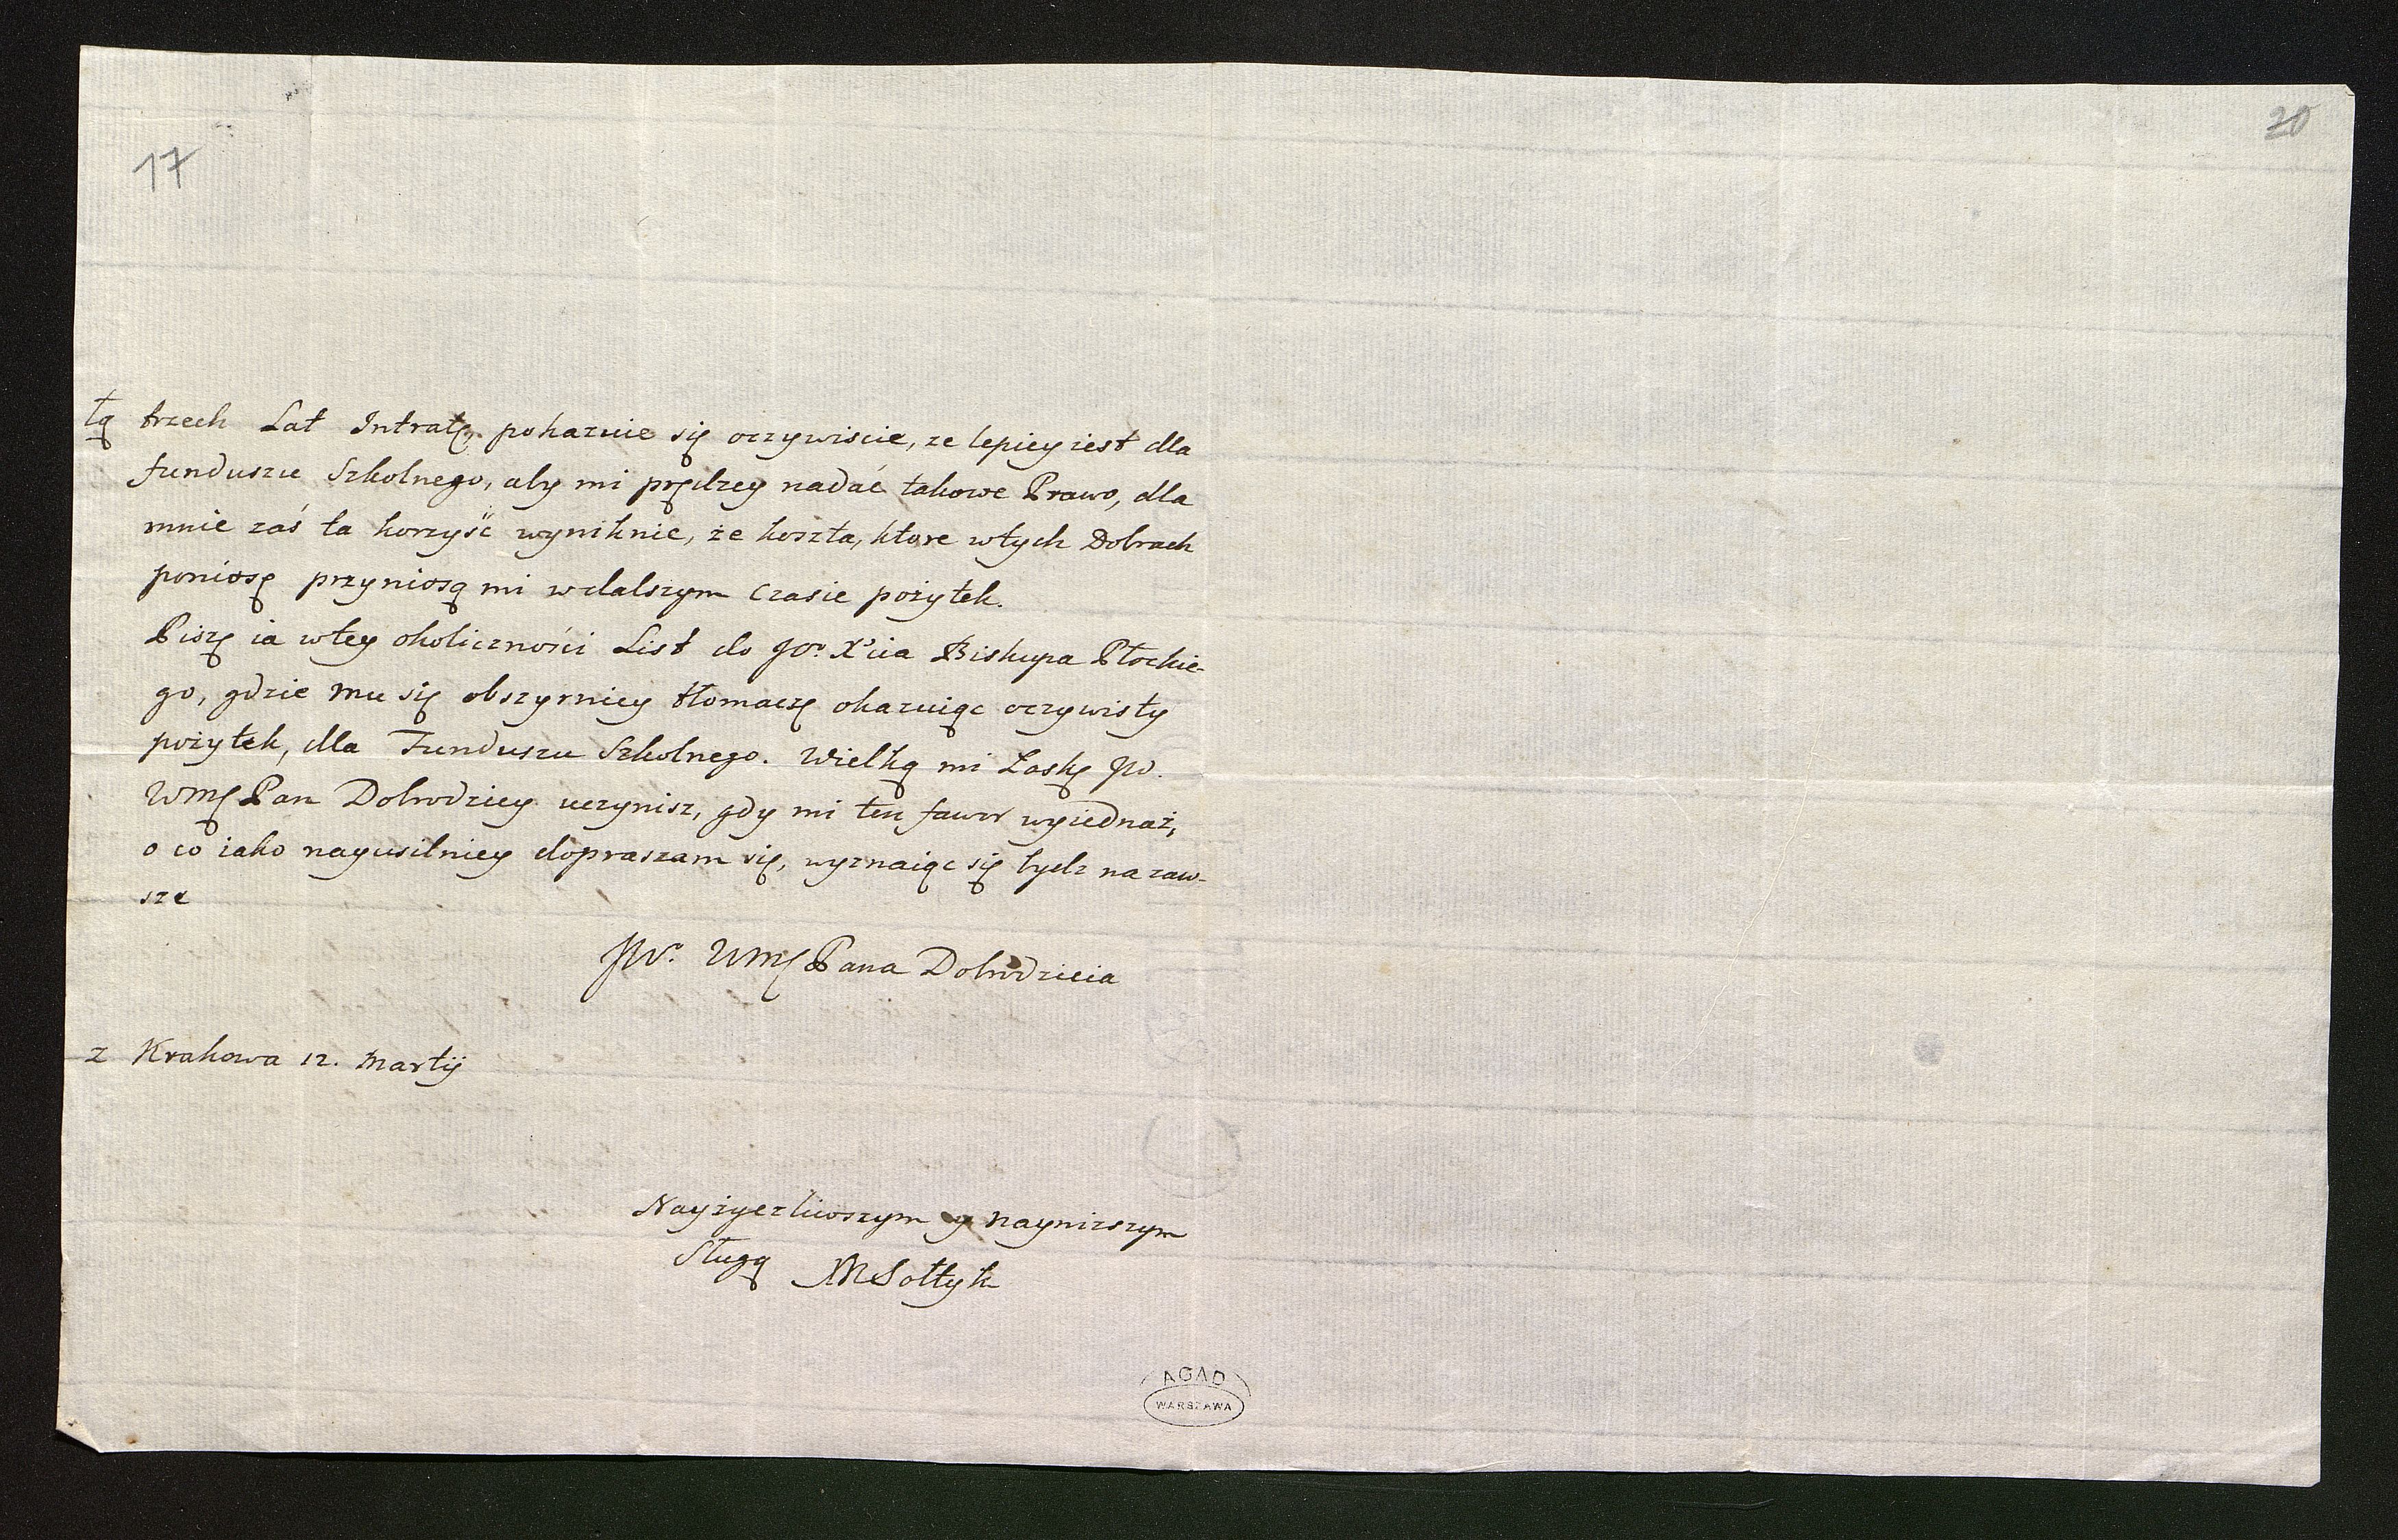 17
20
tą trzech Lat Intratę pokazuie się oczywiscie, ze lepiey iest dla
funduszu Szkolnego, aby mi prędzey nadać takowe Prawo, dla
mnie zaś ta korzyść wyniknie, że koszta, ktore wtych Dobrach
poniosę przyniosą mi wdalszym czasie pożytek.
Piszę ia wtey okoliczności List do JO. Xcia Biskupa Płockie-
go, gdzie mu się obszyrniey tłomaczę okazuiąc oczywisty
pożytek, dla Funduszu Szkolnego. Wielką mi Łaskę JW.
WMę Pan Dobrodziey uczynisz, gdy mi ten fawor wyiednaż,
o co iako nayusilniey dopraszam się, wyznaiąc się bydz na zaw-
sze
JW. WMę Pana Dobrodzieia
z Krakowa 12. Martij
Nayżyczliwszym y naynizszym
Sługą MSołtyk
AGAD
WARSZAWA